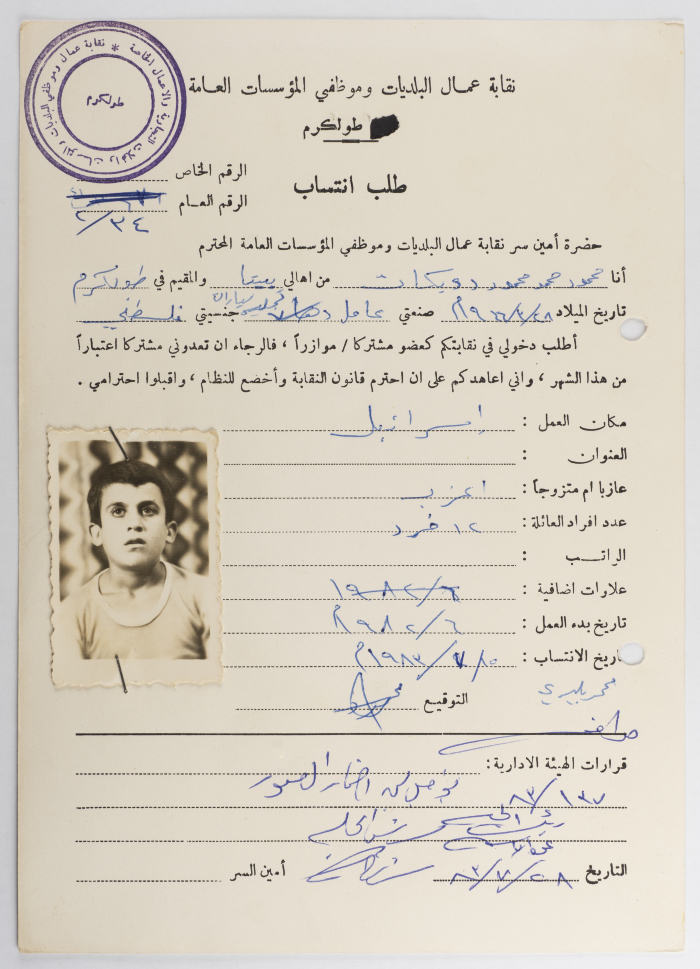 نقابة عمال البلديات وموظفي المؤسسات العامة
طولكرم
طولكرم
الرقم الخاص
طلب انتساب
الرقم العام
٢/٣٤
حضرة أمين سر نقابة عمال البلديات وموظفي المؤسسات العامة المحترم
أنا محمود محمد محمود دويكات من اهالي بيتا والمقيم في طولكرم
تاريخ الميلاد صنعتي عامل جنسيتي فلسطيني
أطلب دخولي في نقابتكم كعضو مشتركا / موازراً ، فالرجاء ان تعدوني مشتركا اعتباراً
من هذا الشهر ، واني اعاهدكم على ان احترم قانون النقابة وأخضع للنظام ، واقبلوا احترامي .
مكان العمل : إسرائيل
العنوان :
عازبا ام متزوجاً : اعزب
عدد افراد العائلة : ١٢ فرد
الراتب :
علاوات اضافية : ١٩٨٢/٦
تاريخ بدء العمل : ١٩٨٢/٦م
تاريخ الانتساب : ١٩٨٣/٧/١٥م
التوقيع
قرارات الهيئة الادارية :
٨٣/١٣٧
التاريخ ٨٣/٧/٢٨ أمين السر